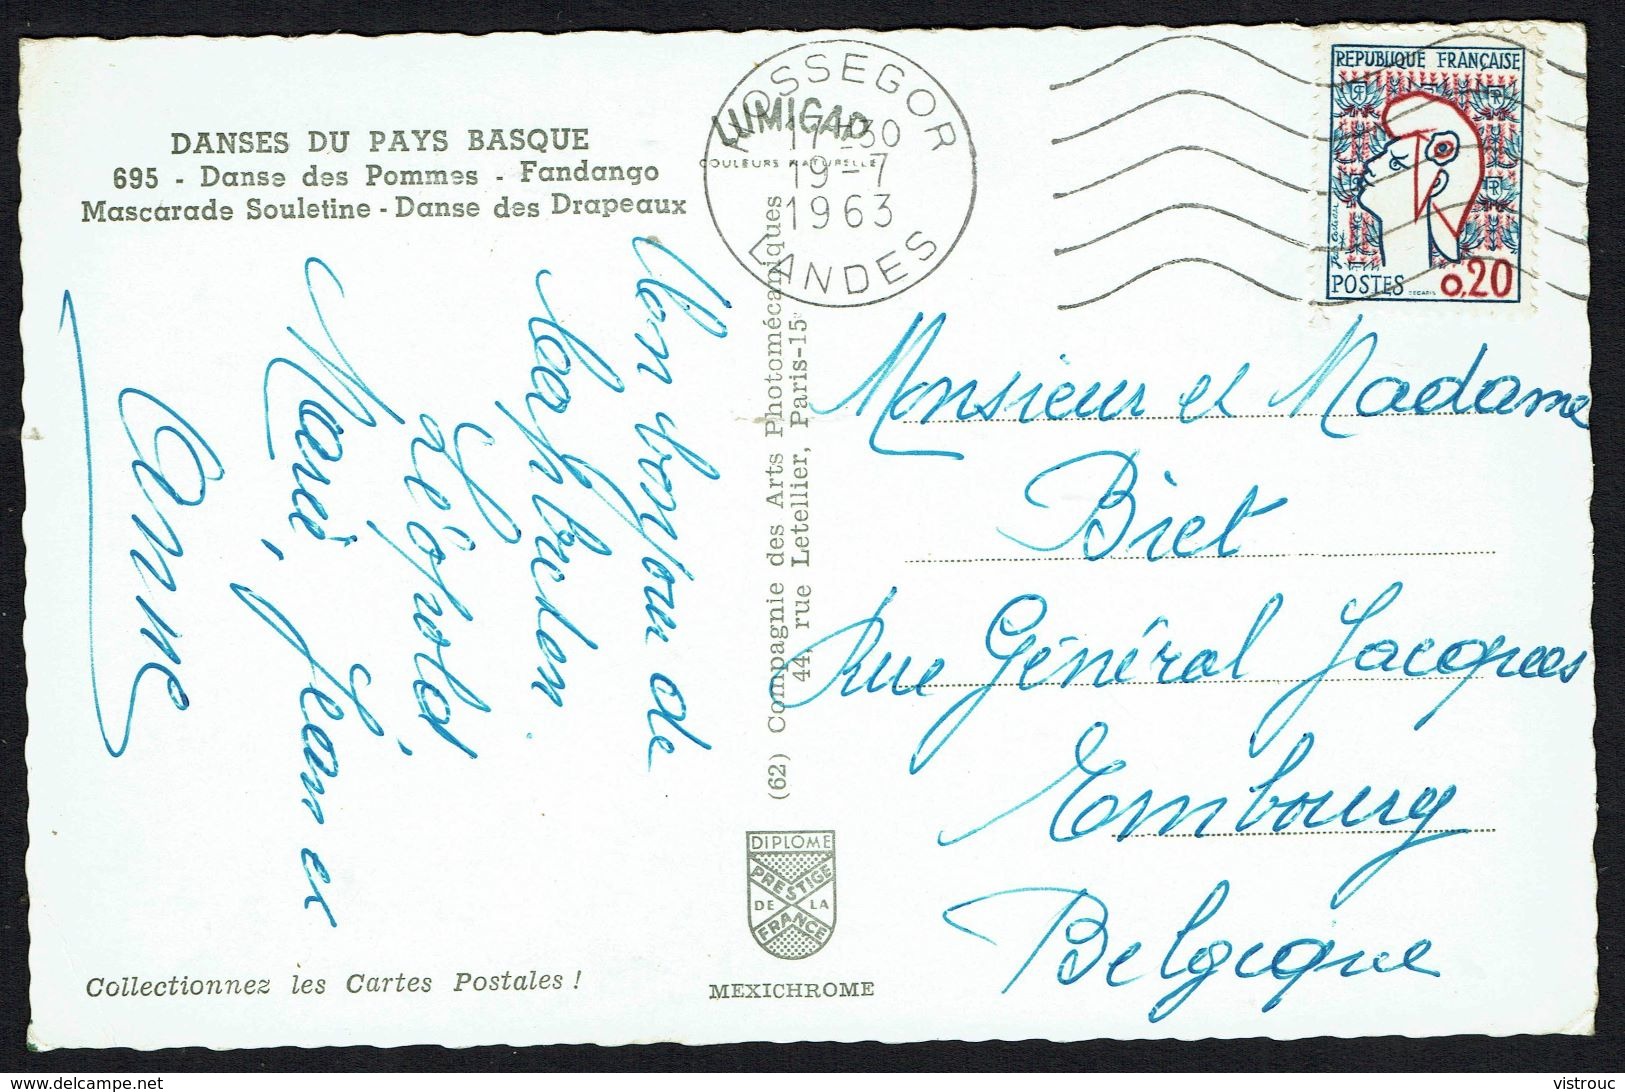 DANSES DU PAYS BASQUE
695 - Danse des Pommes - Fandango
Mascarade Souletine - Danse des Drapeaux
HOSSEGOR
17-30
19-7
1963
LANDES
LUMICAP
COULEURS NATURELLES
REPUBLIQUE FRANÇAISE
POSTES 0,20
DECARIS
bonjour de
Léopold,
Marie, Jean et
Anne
(62) Compagnie des Arts Photomécaniques
44, rue Letellier, Paris-15e
Monsieur et Madame
Biet
Rue Général Jacques
Embourg
Belgique
DIPLOME
PRESTIGE
DE LA
FRANCE
MEXICHROME
Collectionnez les Cartes Postales !
delcampe.net
vistrouc